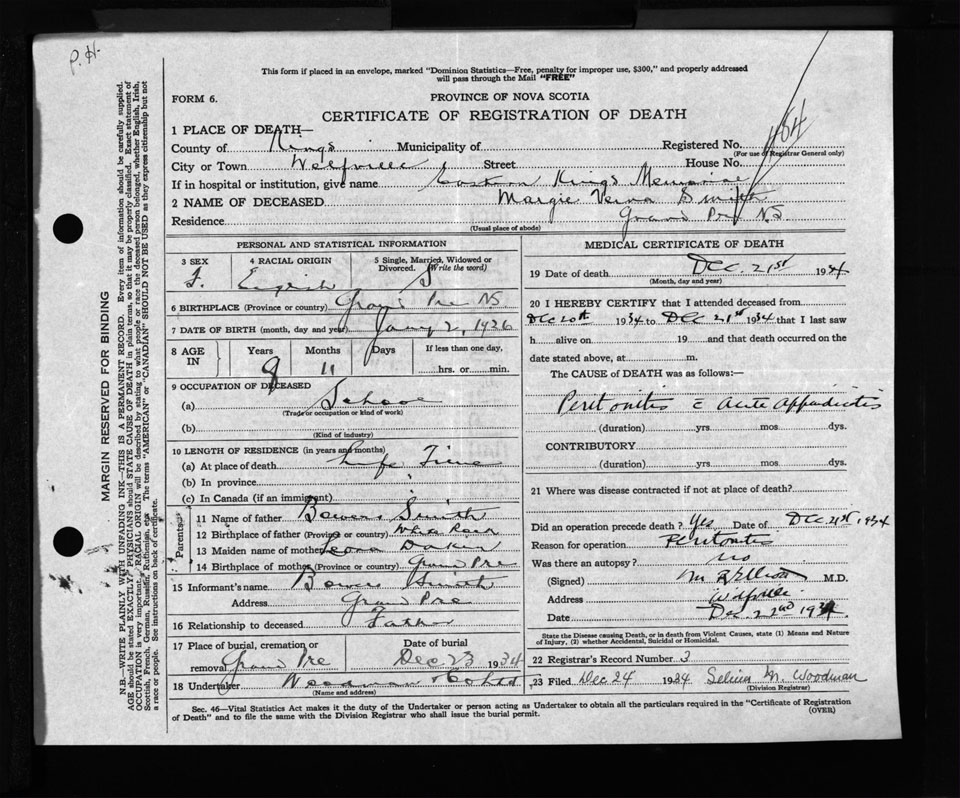 P. H.
This form if placed in an envelope, marked "Dominion Statistics—Free, penalty for improper use, $300," and properly addressed
will pass through the Mail "FREE"
FORM 6.
PROVINCE OF NOVA SCOTIA
CERTIFICATE OF REGISTRATION OF DEATH
464
1 PLACE OF DEATH—
County of Kings Municipality of Registered No.
(For use of Registrar General only)
City or Town Wolfville Street House No.
If in hospital or institution, give name Eastern Kings Memorial
2 NAME OF DECEASED Margie Verna Smith
Residence Grand Pre N.S.
(Usual place of abode)
PERSONAL AND STATISTICAL INFORMATION
3 SEX 4 RACIAL ORIGIN 5 Single, Married, Widowed or Divorced. (Write the word)
F. English S
6 BIRTHPLACE (Province or country) Grand Pre N.S.
7 DATE OF BIRTH (month, day and year) Jany 2, 1926
8 AGE IN Years Months Days If less than one day,
8 11 hrs. or min.
9 OCCUPATION OF DECEASED
(a) School
(Trade or occupation or kind of work)
(b)
(Kind of industry)
10 LENGTH OF RESIDENCE (in years and months)
(a) At place of death Life Time
(b) In province "
(c) In Canada (if an immigrant)
Parents
11 Name of father Bowers Smith
12 Birthplace of father (Province or country)
13 Maiden name of mother Leona
14 Birthplace of mother (Province or country) Grand Pre
15 Informant's name Bowers Smith
Address Grand Pre
16 Relationship to deceased Father
17 Place of burial, cremation or removal Grand Pre Date of burial Dec 23 1934
18 Undertaker Woodman
(Name and address)
MEDICAL CERTIFICATE OF DEATH
19 Date of death Dec. 21st 1934
(Month, day and year)
20 I HEREBY CERTIFY that I attended deceased from
Dec 20th 1934 to Dec 21st 1934 that I last saw
h alive on 19 and that death occurred on the
date stated above, at m.
The CAUSE of DEATH was as follows:—
Peritonitis c̄ acute appendicitis
(duration) yrs. mos. dys.
CONTRIBUTORY
(duration) yrs. mos. dys.
21 Where was disease contracted if not at place of death?
Did an operation precede death? Yes Date of Dec 21st, 1934
Reason for operation Peritonitis
Was there an autopsy? no
(Signed) M R Elliott M.D.
Address Wolfville
Date Dec. 22nd 1934
State the Disease causing Death, or in death from Violent Causes, state (1) Means and Nature
of Injury, (2) whether Accidental, Suicidal or Homicidal.
22 Registrar's Record Number 3
23 Filed Dec 24 1934 Selina M. Woodman
(Division Registrar)
Sec. 46—Vital Statistics Act makes it the duty of the Undertaker or person acting as Undertaker to obtain all the particulars required in the "Certificate of Registration
of Death" and to file the same with the Division Registrar who shall issue the burial permit.
(OVER)
MARGIN RESERVED FOR BINDING
N.B.—WRITE PLAINLY WITH UNFADING INK—THIS IS A PERMANENT RECORD. Every item of information should be carefully supplied.
AGE should be stated EXACTLY. PHYSICIANS should STATE CAUSE OF DEATH in plain terms, so that it may be properly classified. Exact statement of
OCCUPATION is very important. RACIAL ORIGIN will be described by stating to what people or race the deceased person belonged, whether English, Irish,
Scottish, French, German, Russian, Ruthenian, etc. The terms "AMERICAN" or "CANADIAN" SHOULD NOT BE USED as they express citizenship but not
a race or people. See instructions on back of certificate.